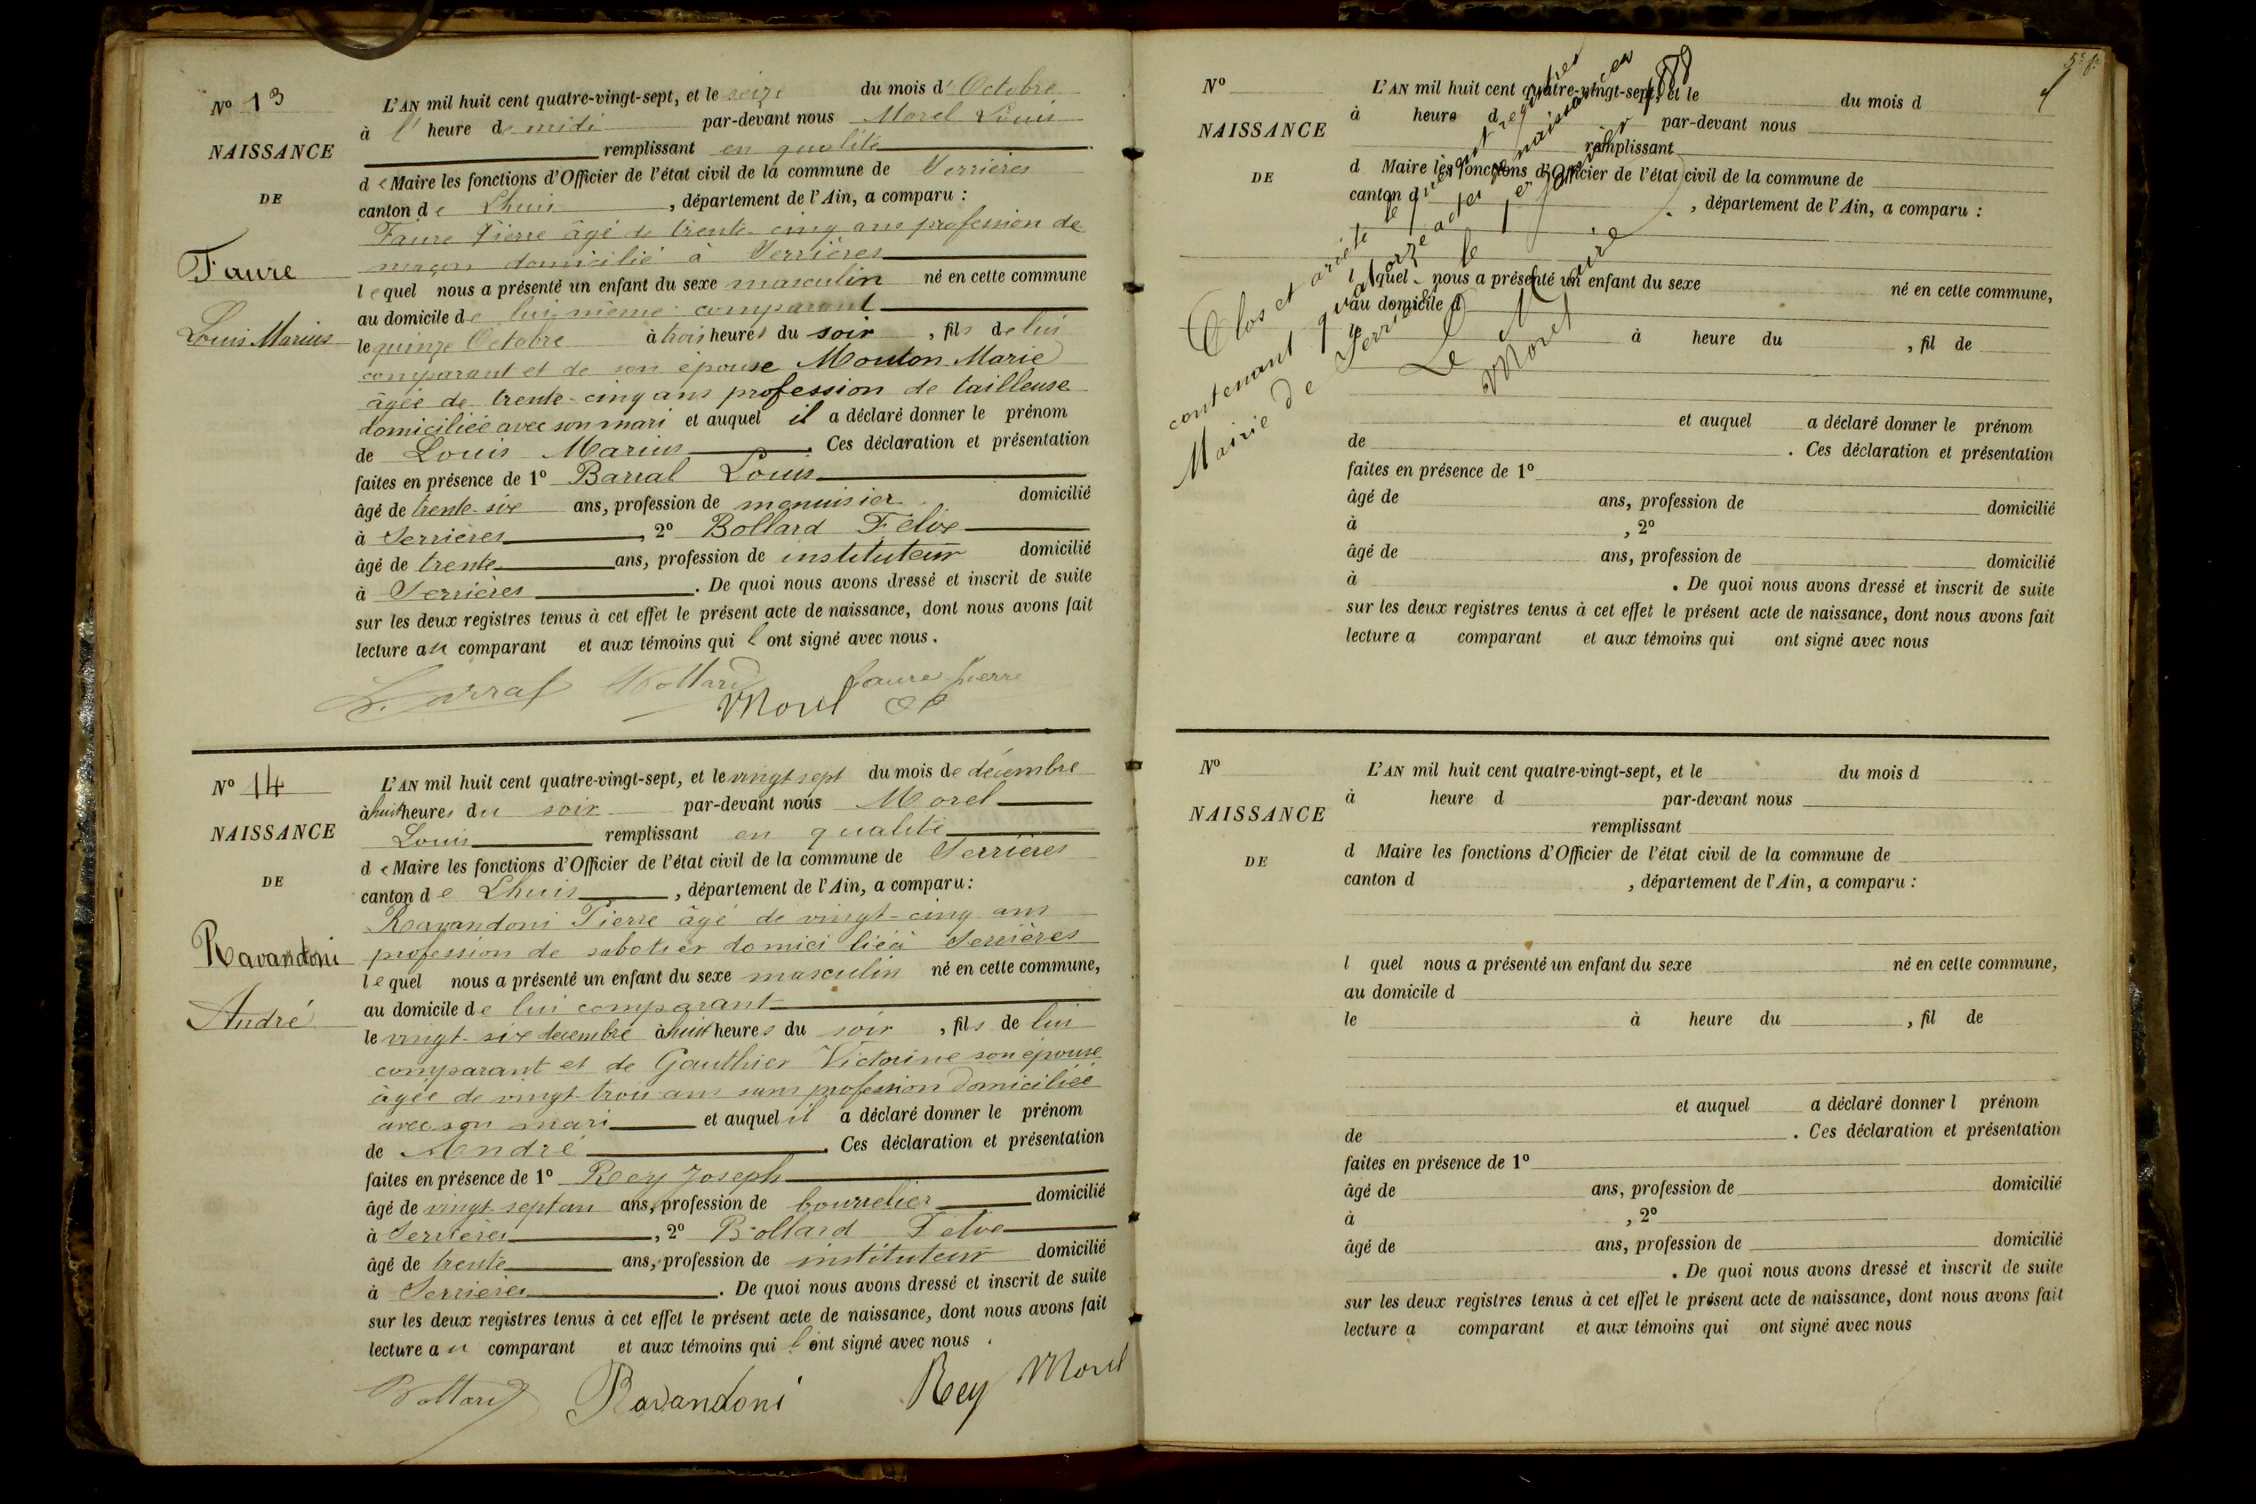 N° 13
NAISSANCE
DE
Faure
Louis Marius
L'AN mil huit cent quatre-vingt-sept, et le seize du mois d'Octobre
à l' heure de midi par-devant nous Morel Louis
remplissant en qualité
de Maire les fonctions d'Officier de l'état civil de la commune de Serrières
canton de Lhuis, département de l'Ain, a comparu :
Faure Pierre âgé de trente-cinq ans profession de
maçon domicilié à Serrières
lequel nous a présenté un enfant du sexe masculin né en cette commune
au domicile de lui-même comparant
le quinze Octobre à trois heures du soir, fils de lui
comparant et de son épouse Mouton Marie
âgée de trente-cinq ans profession de tailleuse
domiciliée avec son mari et auquel il a déclaré donner le prénom
de Louis Marius. Ces déclaration et présentation
faites en présence de 1° Barral Louis
âgé de trente-six ans, profession de menuisier domicilié
à Serrières, 2° Bollard Félix
âgé de trente ans, profession de instituteur domicilié
à Serrières. De quoi nous avons dressé et inscrit de suite
sur les deux registres tenus à cet effet le présent acte de naissance, dont nous avons fait
lecture au comparant et aux témoins qui l'ont signé avec nous.
L. Barral Bollard Faure Pierre
Morel
N° 14
NAISSANCE
DE
Ravandoni
André
L'AN mil huit cent quatre-vingt-sept, et le vingt sept du mois de décembre
à huit heures du soir par-devant nous Morel
Louis remplissant en qualité
de Maire les fonctions d'Officier de l'état civil de la commune de Serrières
canton de Lhuis, département de l'Ain, a comparu :
Ravandoni Pierre âgé de vingt-cinq ans
profession de sabotier domicilié à Serrières
lequel nous a présenté un enfant du sexe masculin né en cette commune,
au domicile de lui comparant
le vingt-six decembre à huit heures du soir, fils de lui
comparant et de Gauthier Victorine son épouse
âgée de vingt-trois ans sans profession domiciliée
avec son mari et auquel il a déclaré donner le prénom
de André. Ces déclaration et présentation
faites en présence de 1° Rey Joseph
âgé de vingt septans ans, profession de bourrelier domicilié
à Serrières, 2° Bollard Felix
âgé de trente ans, profession de instituteur domicilié
à Serrières. De quoi nous avons dressé et inscrit de suite
sur les deux registres tenus à cet effet le présent acte de naissance, dont nous avons fait
lecture au comparant et aux témoins qui l'ont signé avec nous.
Bollard Ravandoni Rey Morel
N°
NAISSANCE
DE
L'AN mil huit cent quatre-vingt-sept, et le du mois d
à heure d par-devant nous
remplissant
d Maire les fonctions d'Officier de l'état civil de la commune de
canton d , département de l'Ain, a comparu :
l quel nous a présenté un enfant du sexe né en cette commune,
au domicile d
le à heure du , fil de
et auquel a déclaré donner le prénom
de . Ces déclaration et présentation
faites en présence de 1°
âgé de ans, profession de domicilié
à , 2°
âgé de ans, profession de domicilié
à . De quoi nous avons dressé et inscrit de suite
sur les deux registres tenus à cet effet le présent acte de naissance, dont nous avons fait
lecture a comparant et aux témoins qui ont signé avec nous
Clos et arrêté le présent registre
contenant quatorze actes de naissances
Mairie de Serrières le 1er Janvier 1888
Le Maire
Morel
N°
NAISSANCE
DE
L'AN mil huit cent quatre-vingt-sept, et le du mois d
à heure d par-devant nous
remplissant
d Maire les fonctions d'Officier de l'état civil de la commune de
canton d , département de l'Ain, a comparu :
l quel nous a présenté un enfant du sexe né en cette commune,
au domicile d
le à heure du , fil de
et auquel a déclaré donner l prénom
de . Ces déclaration et présentation
faites en présence de 1°
âgé de ans, profession de domicilié
à , 2°
âgé de ans, profession de domicilié
. De quoi nous avons dressé et inscrit de suite
sur les deux registres tenus à cet effet le présent acte de naissance, dont nous avons fait
lecture a comparant et aux témoins qui ont signé avec nous